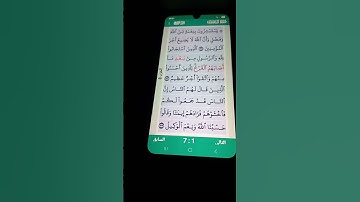 يَسْتَبْشِرُونَ بِنِعْمَةٍ مِّنَ ٱللَّهِ
وَفَضْلٍ وَأَنَّ ٱللَّهَ لَا يُضِيعُ أَجْرَ
ٱلْمُؤْمِنِينَ ٱلَّذِينَ ٱسْتَجَابُوا۟
لِلَّهِ وَٱلرَّسُولِ مِنۢ بَعْدِ مَآ
أَصَابَهُمُ ٱلْقَرْحُ لِلَّذِينَ أَحْسَنُوا۟
مِنْهُمْ وَٱتَّقَوْا۟ أَجْرٌ عَظِيمٌ
ٱلَّذِينَ قَالَ لَهُمُ ٱلنَّاسُ إِنَّ
ٱلنَّاسَ قَدْ جَمَعُوا۟ لَكُمْ
فَٱخْشَوْهُمْ فَزَادَهُمْ إِيمَٰنًا وَقَالُوا۟
حَسْبُنَا ٱللَّهُ وَنِعْمَ ٱلْوَكِيلُ
التالي 7:1 السابق